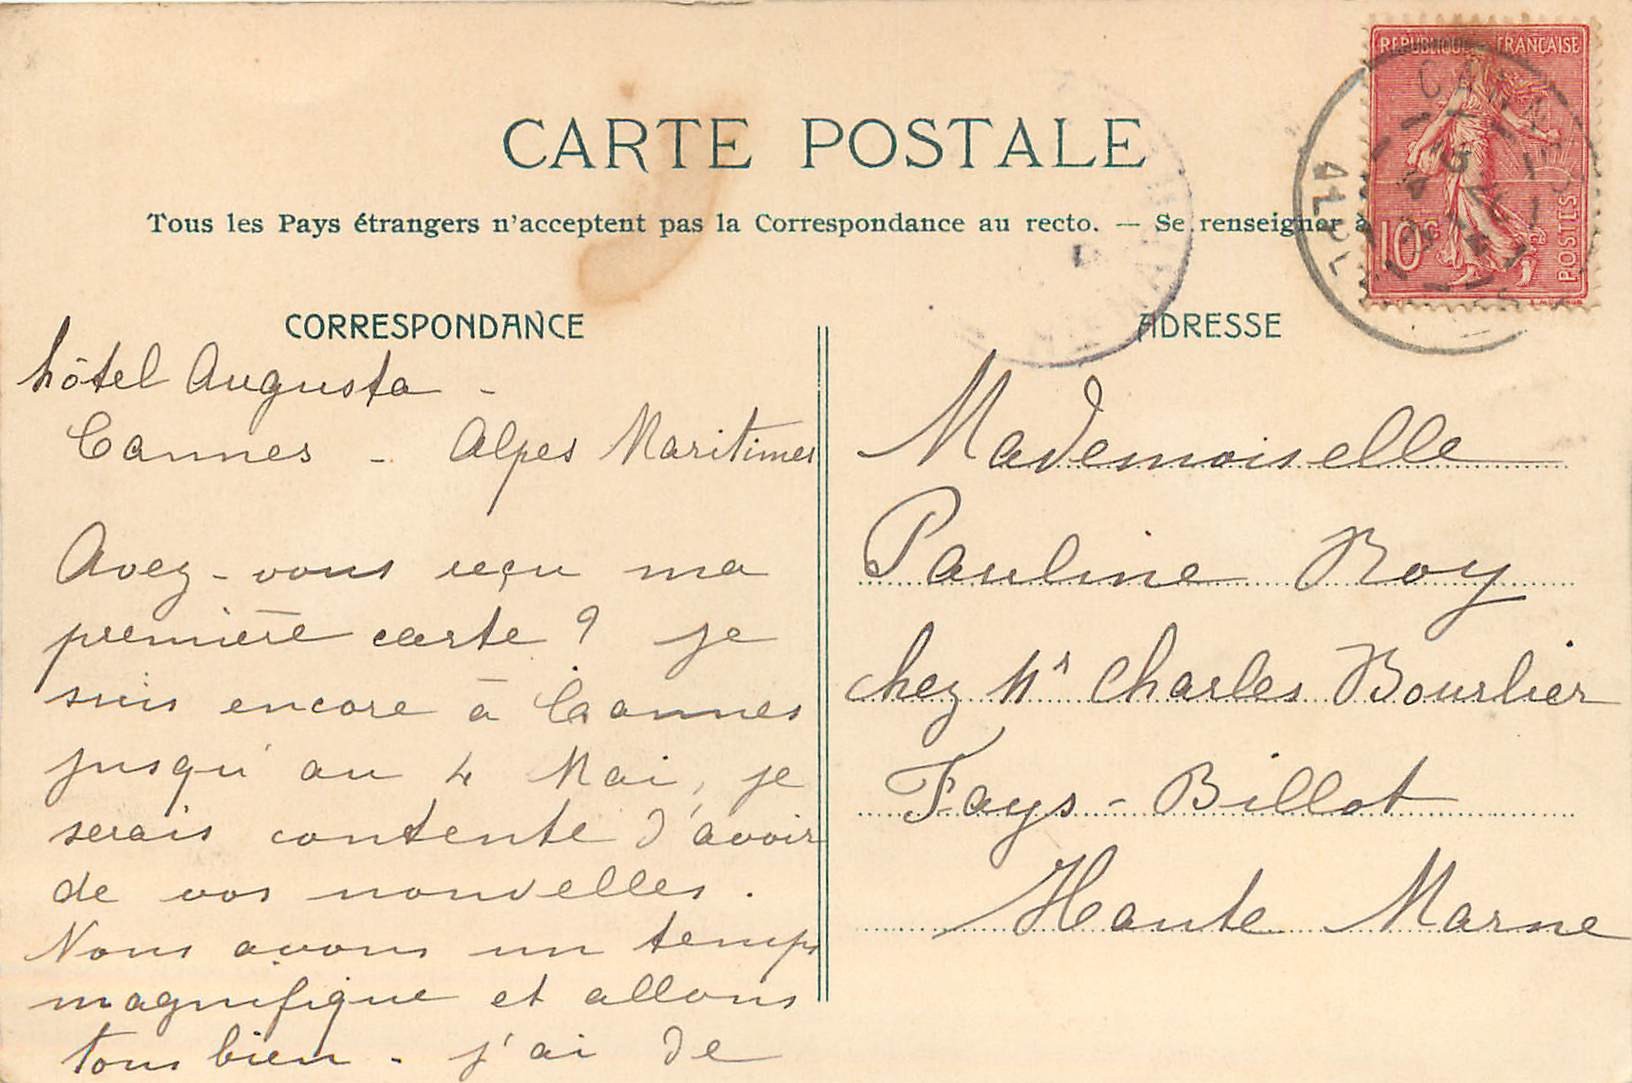 CARTE POSTALE
Tous les Pays étrangers n'acceptent pas la Correspondance au recto. — Se renseigner à
CORRESPONDANCE
hôtel Augusta -
Cannes - Alpes Maritimes
Avez-vous reçu ma
première carte ? je
suis encore à Cannes
jusqu'au 4 Mai, je
serais contente d'avoir
de vos nouvelles.
Nous avons un temps
magnifique et allons
tous bien - j'ai de
ADRESSE
Mademoiselle
Pauline Roy
chez Mr Charles Bourlier
Fays-Billot
Haute Marne
REPUBLIQUE FRANÇAISE
10c
POSTES
CANNES